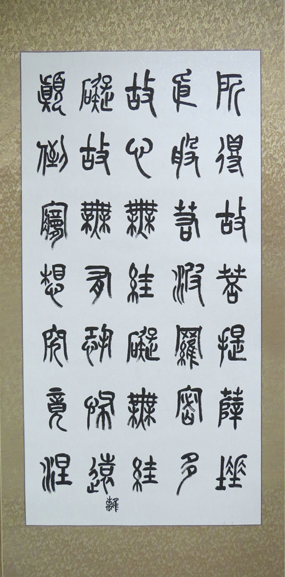 所得故菩提薩埵
依般若波羅密多
故心無絓礙無絓
礙故無有恐怖遠離
顛倒夢想究竟涅